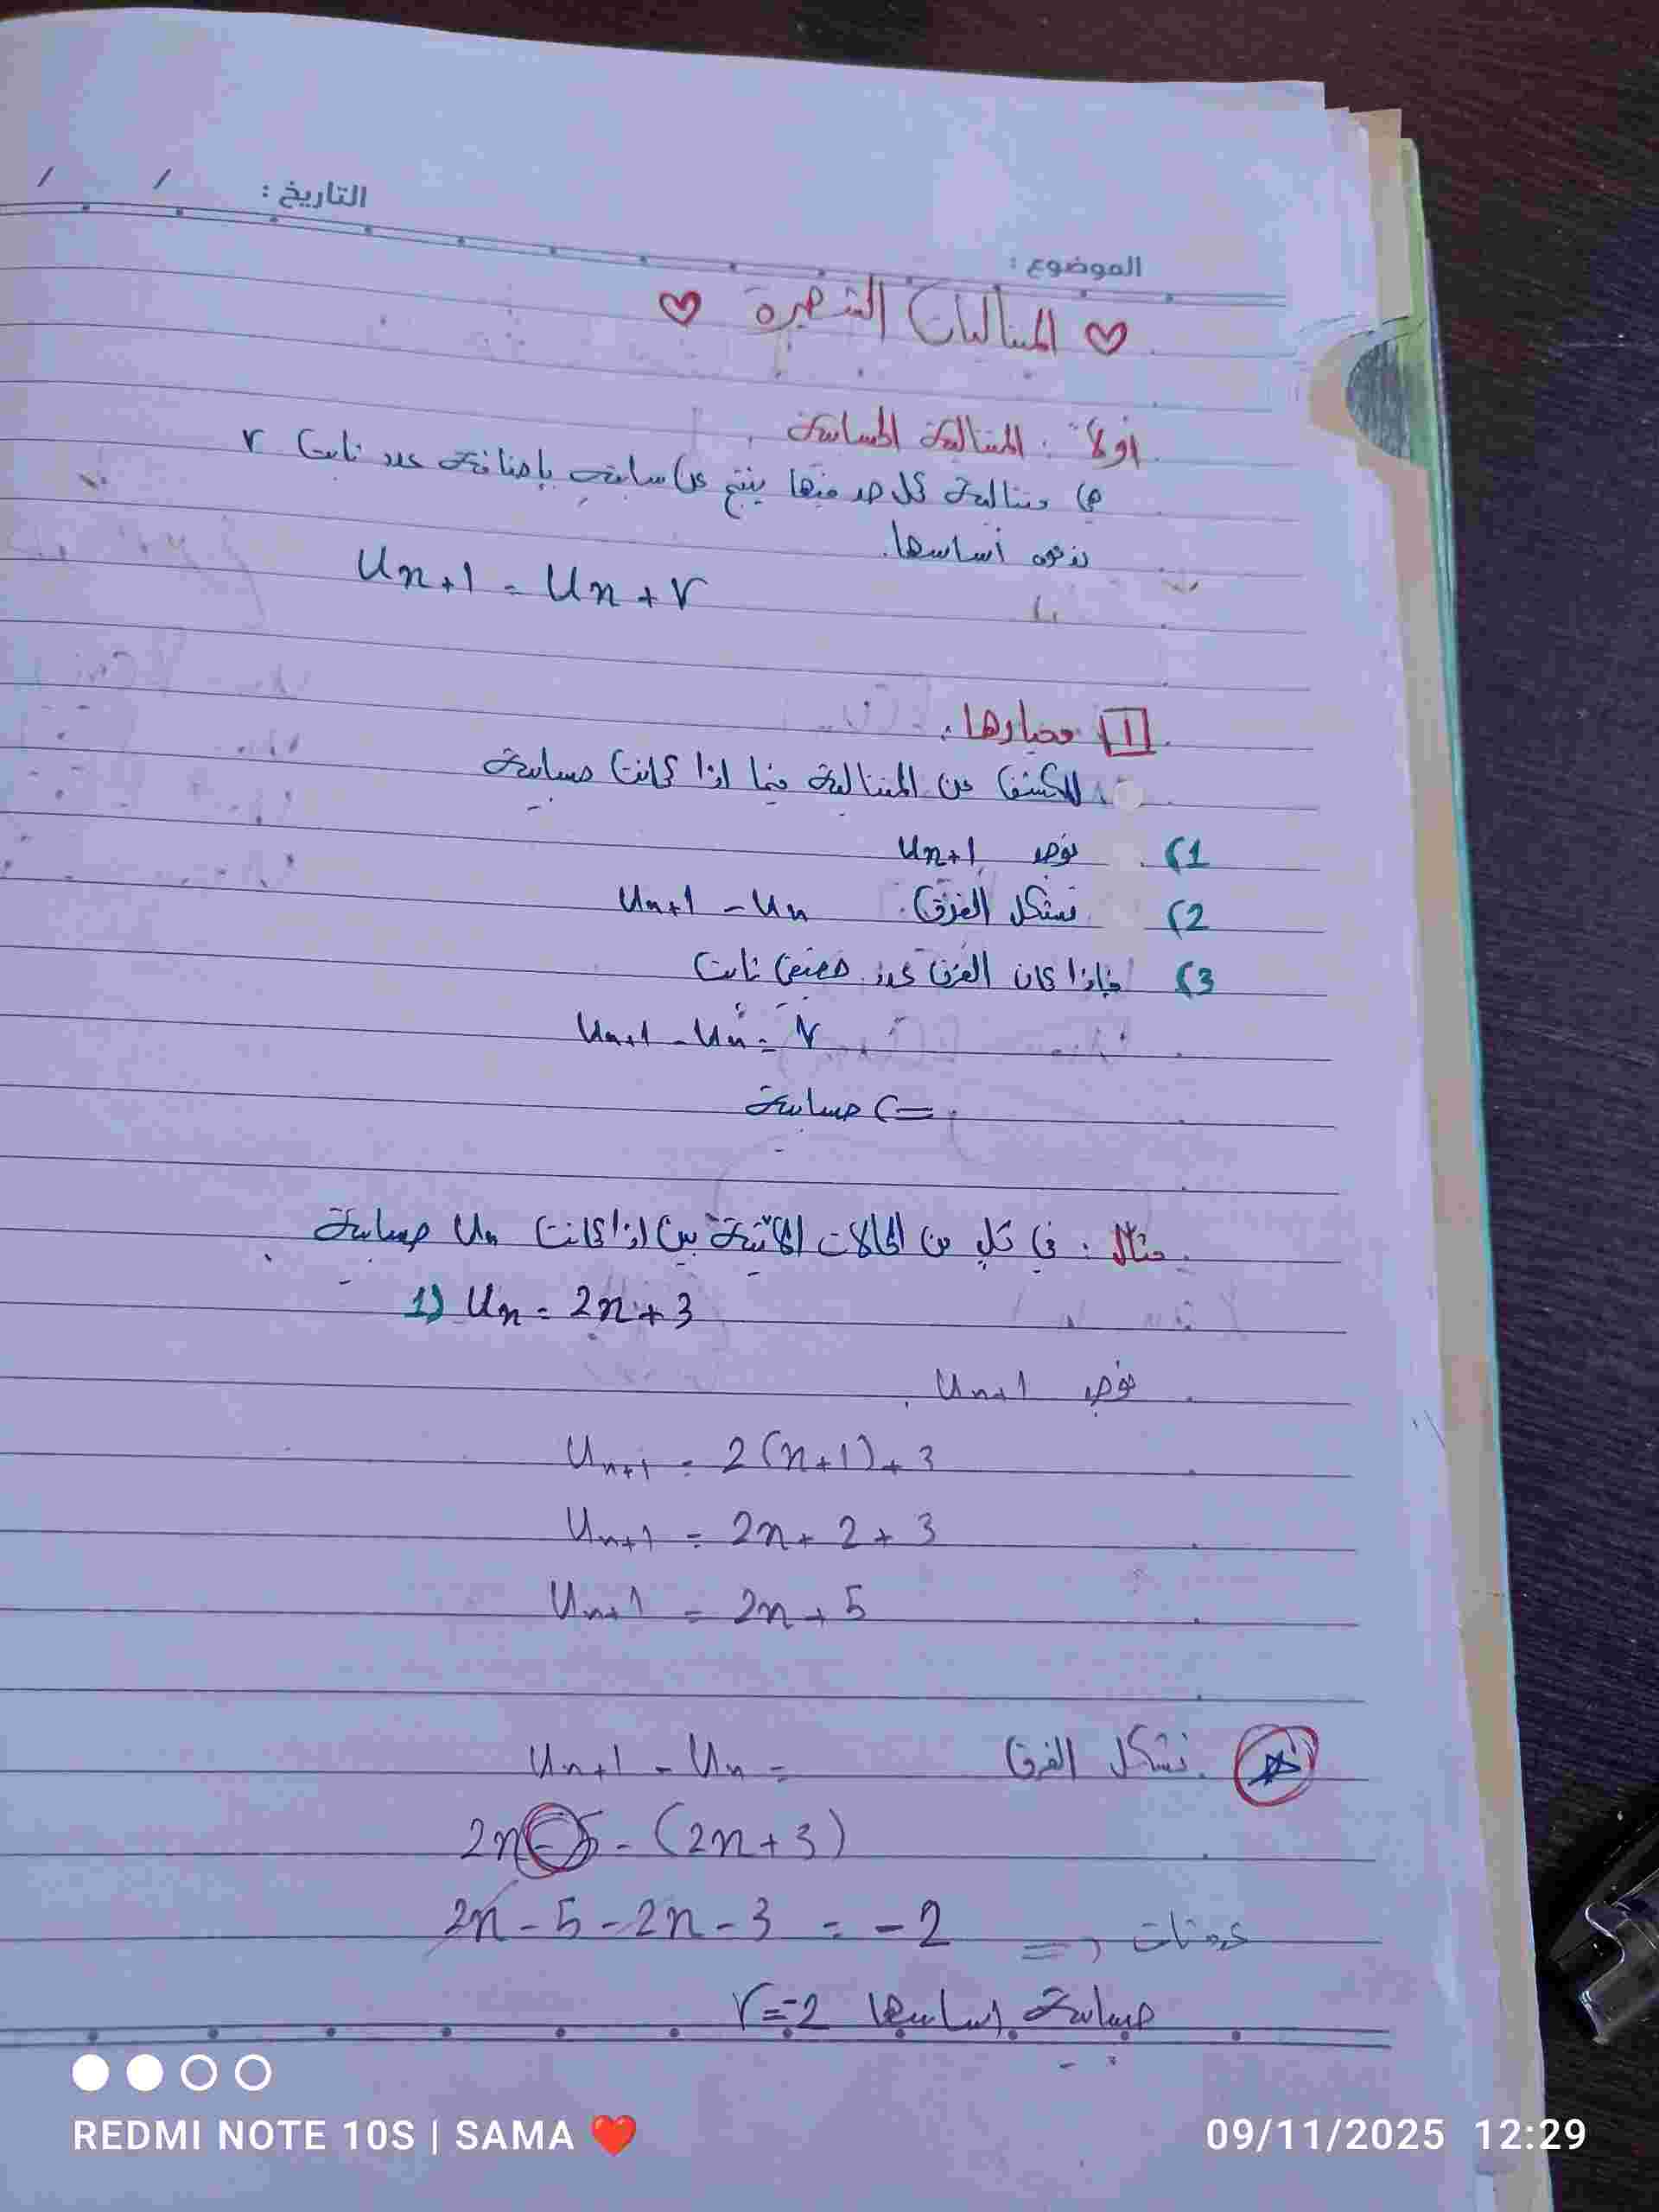 التاريخ : / /
الموضوع :
♡ المتتاليات الشهيرة ♡
أولاً : المتتالية الحسابية
هي متتالية كل حد منها ينتج عن سابقه بإضافة عدد ثابت r
ندعوه أساسها.
Un+1 = Un + r
1 معيارها :
للكشف عن المتتالية فيما اذا كانت حسابية
1) نوجد Un+1
2) نشكل الفرق Un+1 - Un
3) فإذا كان الفرق عدد حقيقي ثابت
Un+1 - Un = r
=> حسابية
مثال : في كل من الحالات الآتية بين اذا كانت Un حسابية
1) Un = 2n + 3
نوجد Un+1
Un+1 = 2(n+1) + 3
Un+1 = 2n + 2 + 3
Un+1 = 2n + 5
نشكل الفرق Un+1 - Un =
2n - 5 - (2n + 3)
2n - 5 - 2n - 3 = -2 <= عدد ثابت
حسابية اساسها r = -2
REDMI NOTE 10S | SAMA ❤️
09/11/2025 12:29